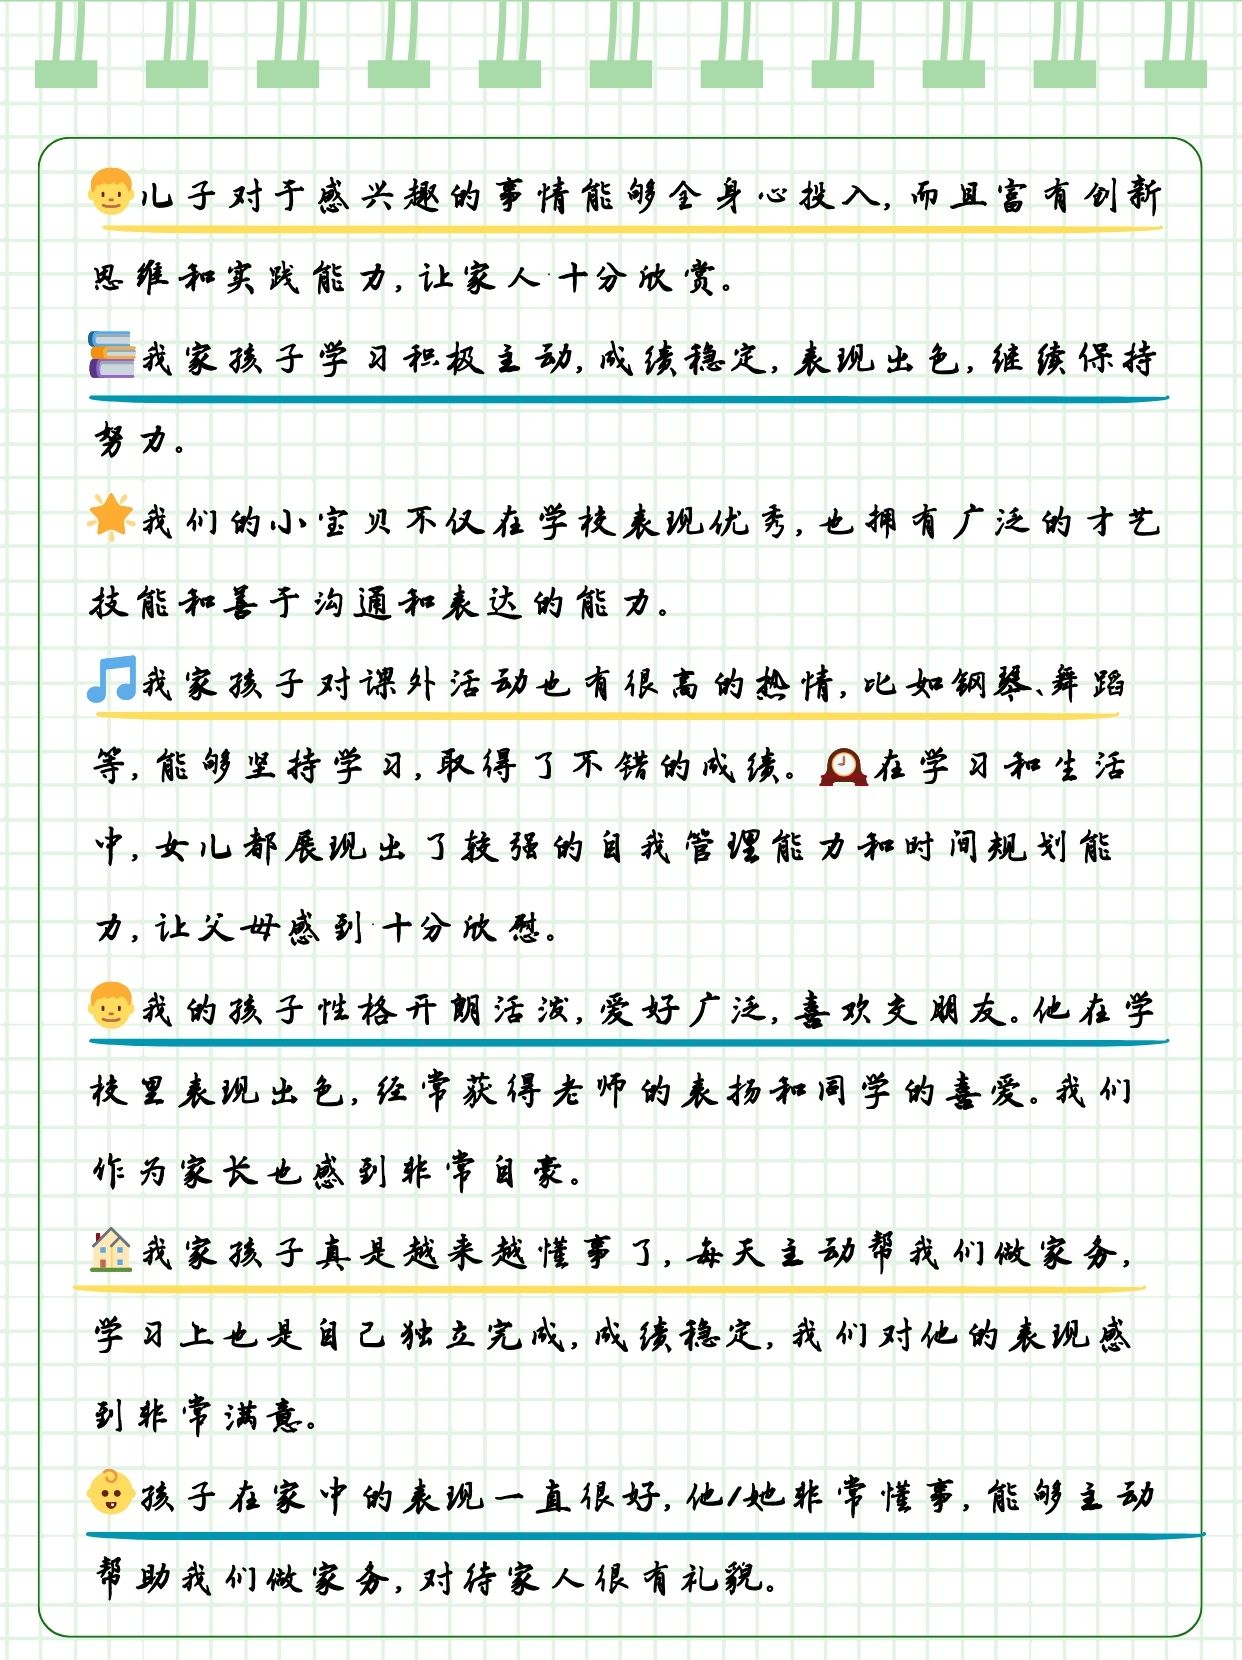 👦儿子对于感兴趣的事情能够全身心投入,而且富有创新
思维和实践能力,让家人十分欣赏。
📚我家孩子学习积极主动,成绩稳定,表现出色,继续保持
努力。
🌟我们的小宝贝不仅在学校表现优秀,也拥有广泛的才艺
技能和善于沟通和表达的能力。
🎵我家孩子对课外活动也有很高的热情,比如钢琴、舞蹈
等,能够坚持学习,取得了不错的成绩。🕰在学习和生活
中,女儿都展现出了较强的自我管理能力和时间规划能
力,让父母感到十分欣慰。
👦我的孩子性格开朗活泼,爱好广泛,喜欢交朋友。他在学
校里表现出色,经常获得老师的表扬和同学的喜爱。我们
作为家长也感到非常自豪。
🏠我家孩子真是越来越懂事了,每天主动帮我们做家务,
学习上也是自己独立完成,成绩稳定,我们对他的表现感
到非常满意。
👶孩子在家中的表现一直很好,他/她非常懂事,能够主动
帮助我们做家务,对待家人很有礼貌。